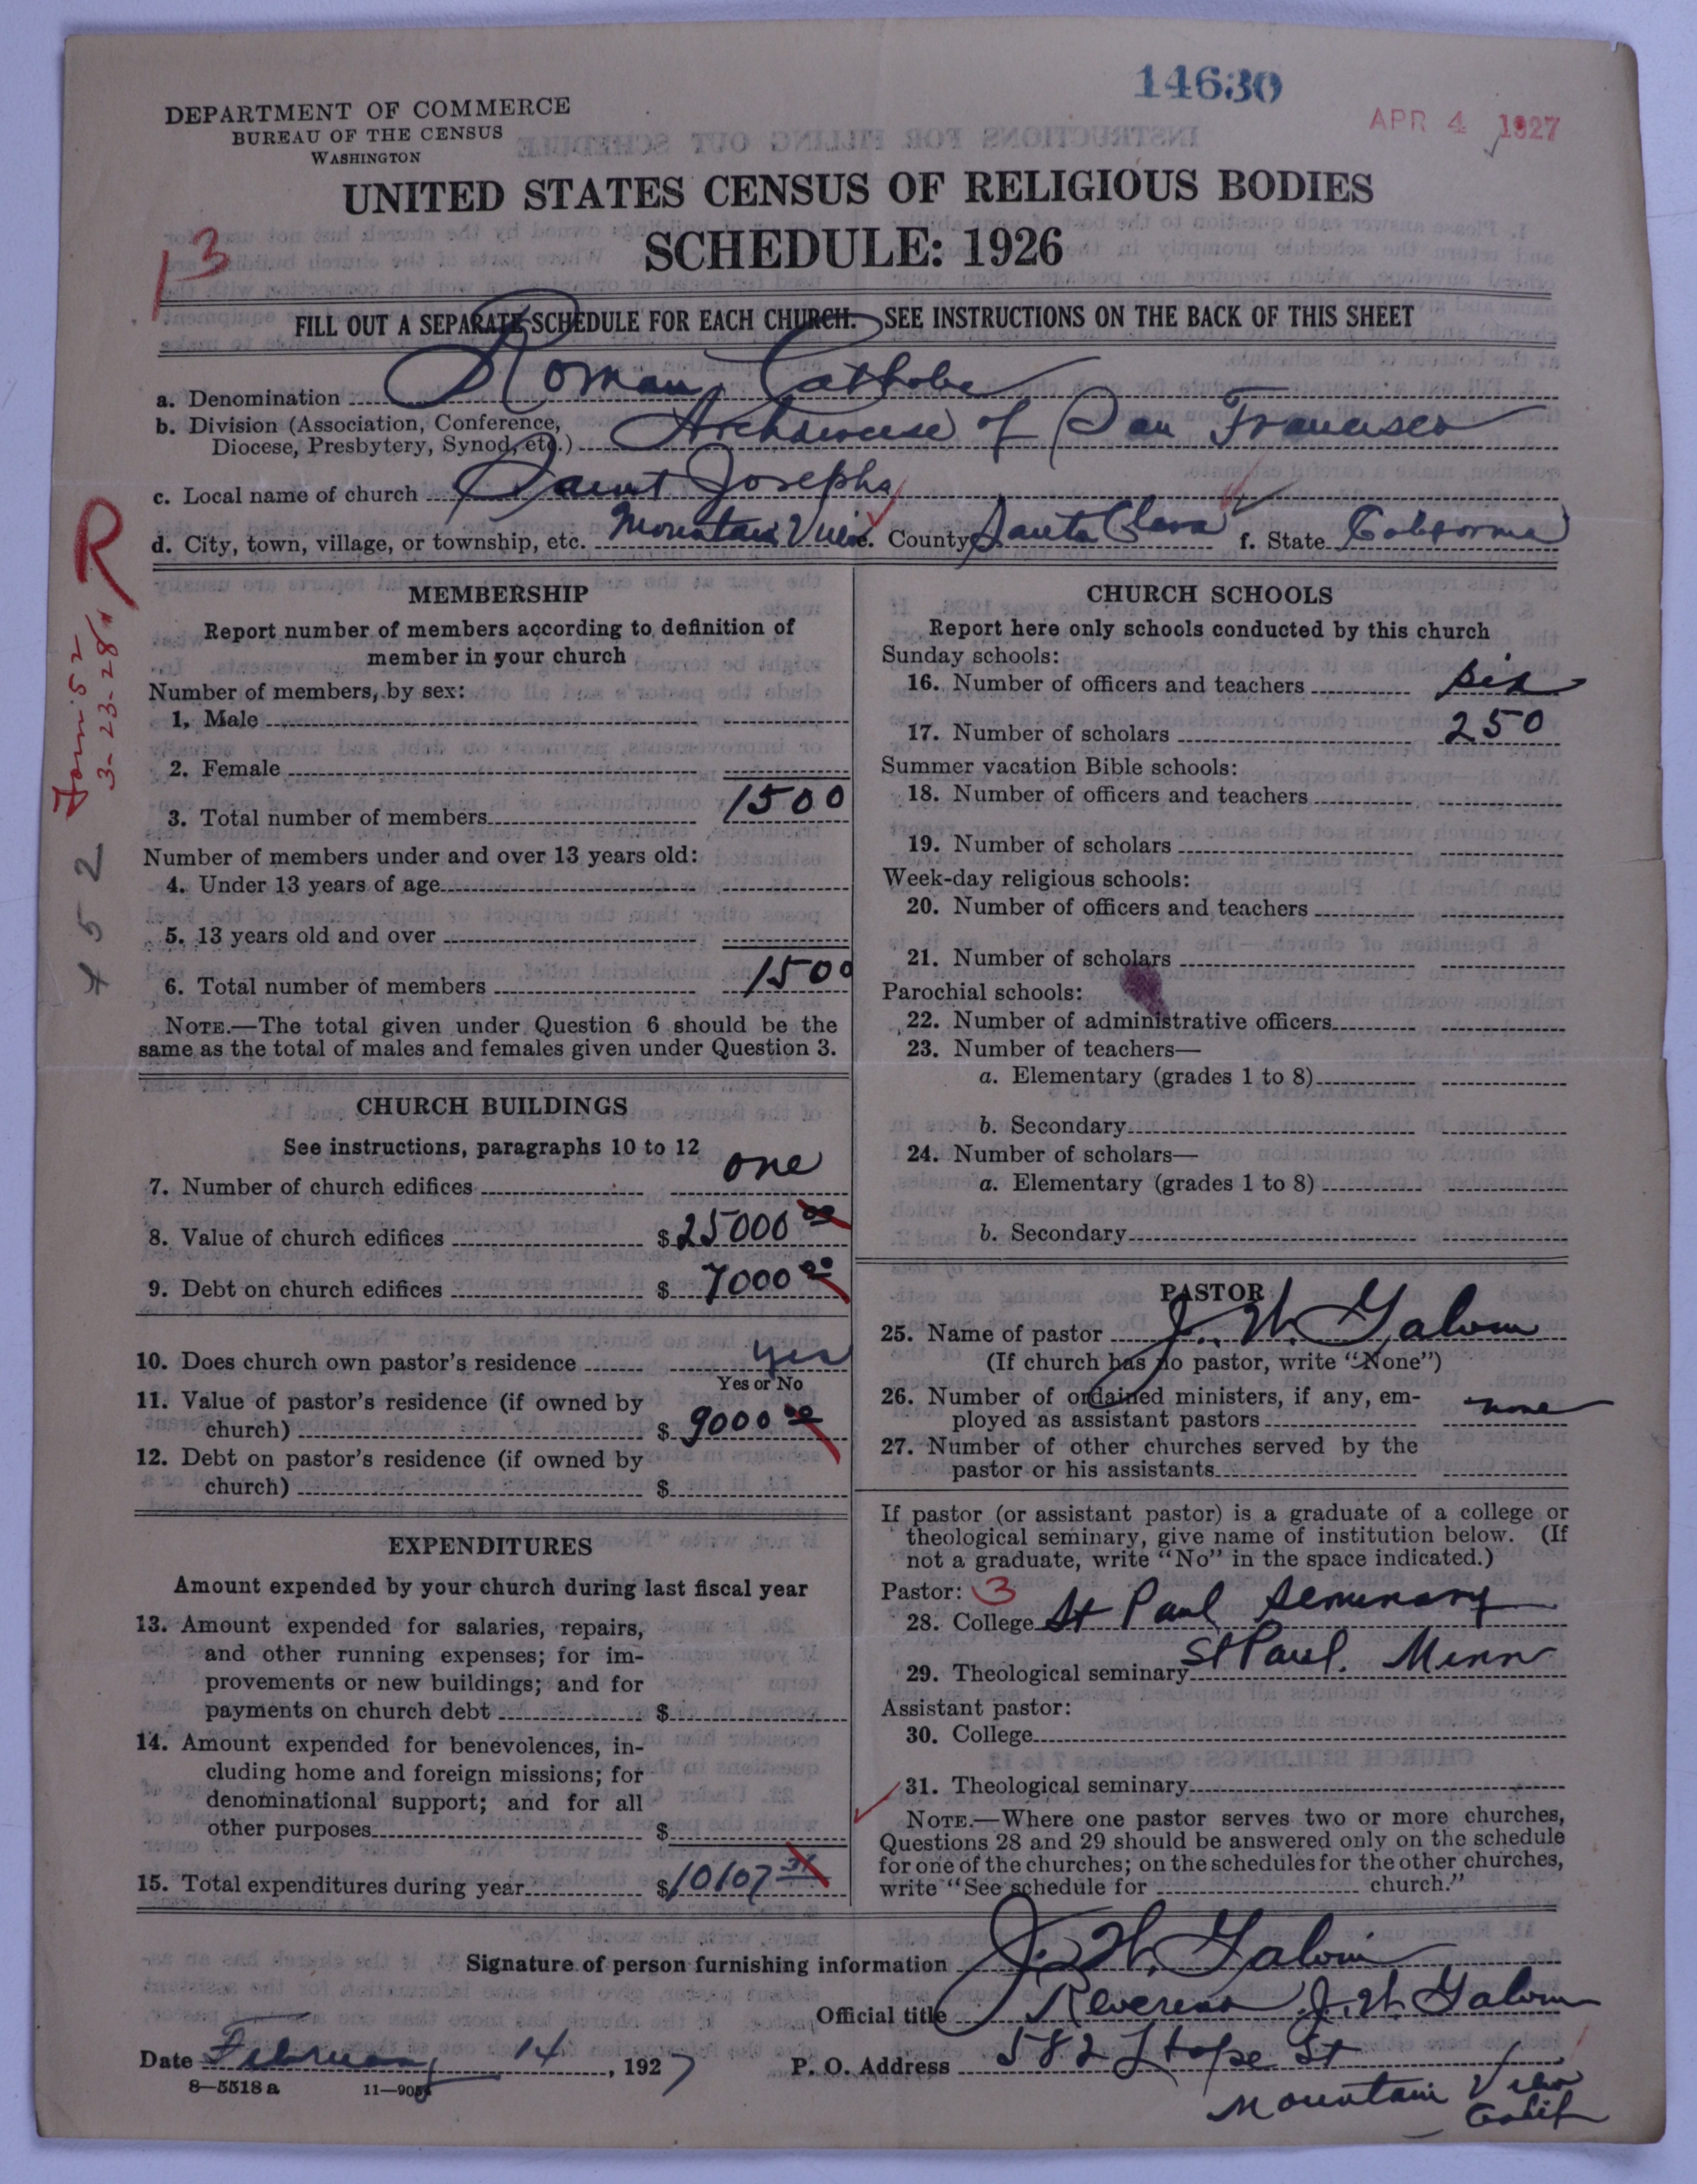 14630
APR 4 1927
DEPARTMENT OF COMMERCE
BUREAU OF THE CENSUS
WASHINGTON
UNITED STATES CENSUS OF RELIGIOUS BODIES
SCHEDULE: 1926
13
FILL OUT A SEPARATE SCHEDULE FOR EACH CHURCH. SEE INSTRUCTIONS ON THE BACK OF THIS SHEET
a. Denomination Roman Catholic
b. Division (Association, Conference, Diocese, Presbytery, Synod, etc.) Archdiocese of San Francisco
c. Local name of church Saint Josephs
d. City, town, village, or township, etc. Mountain View e. County Santa Clara f. State California
R
3-23-28
452
MEMBERSHIP
Report number of members according to definition of
member in your church
Number of members, by sex:
1. Male
2. Female
3. Total number of members 1500
Number of members under and over 13 years old:
4. Under 13 years of age
5. 13 years old and over
6. Total number of members 1500
NOTE.—The total given under Question 6 should be the
same as the total of males and females given under Question 3.
CHURCH BUILDINGS
See instructions, paragraphs 10 to 12
7. Number of church edifices one
8. Value of church edifices $25000 00
9. Debt on church edifices $ 7000 00
10. Does church own pastor's residence yes
Yes or No
11. Value of pastor's residence (if owned by
church) $ 9000 00
12. Debt on pastor's residence (if owned by
church) $
EXPENDITURES
Amount expended by your church during last fiscal year
13. Amount expended for salaries, repairs,
and other running expenses; for im-
provements or new buildings; and for
payments on church debt $
14. Amount expended for benevolences, in-
cluding home and foreign missions; for
denominational support; and for all
other purposes $
15. Total expenditures during year $10107 31
CHURCH SCHOOLS
Report here only schools conducted by this church
Sunday schools:
16. Number of officers and teachers six
17. Number of scholars 250
Summer vacation Bible schools:
18. Number of officers and teachers
19. Number of scholars
Week-day religious schools:
20. Number of officers and teachers
21. Number of scholars
Parochial schools:
22. Number of administrative officers
23. Number of teachers—
a. Elementary (grades 1 to 8)
b. Secondary
24. Number of scholars—
a. Elementary (grades 1 to 8)
b. Secondary
PASTOR
25. Name of pastor J. W. Galvin
(If church has no pastor, write "None")
26. Number of ordained ministers, if any, em-
ployed as assistant pastors none
27. Number of other churches served by the
pastor or his assistants
If pastor (or assistant pastor) is a graduate of a college or
theological seminary, give name of institution below. (If
not a graduate, write "No" in the space indicated.)
Pastor: 3
28. College St Paul Seminary
29. Theological seminary St Paul. Minn
Assistant pastor:
30. College
31. Theological seminary
NOTE.—Where one pastor serves two or more churches,
Questions 28 and 29 should be answered only on the schedule
for one of the churches; on the schedules for the other churches,
write "See schedule for church."
Signature of person furnishing information J. W. Galvin
Official title Reverend J. W. Galvin
Date February 14, 1927 P. O. Address 582 Hope St
Mountain View
Calif
8—5518 a 11—9054